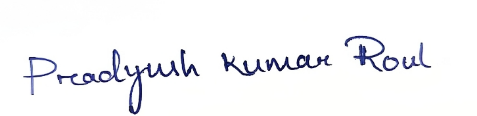 Preadyush Kumar Roul